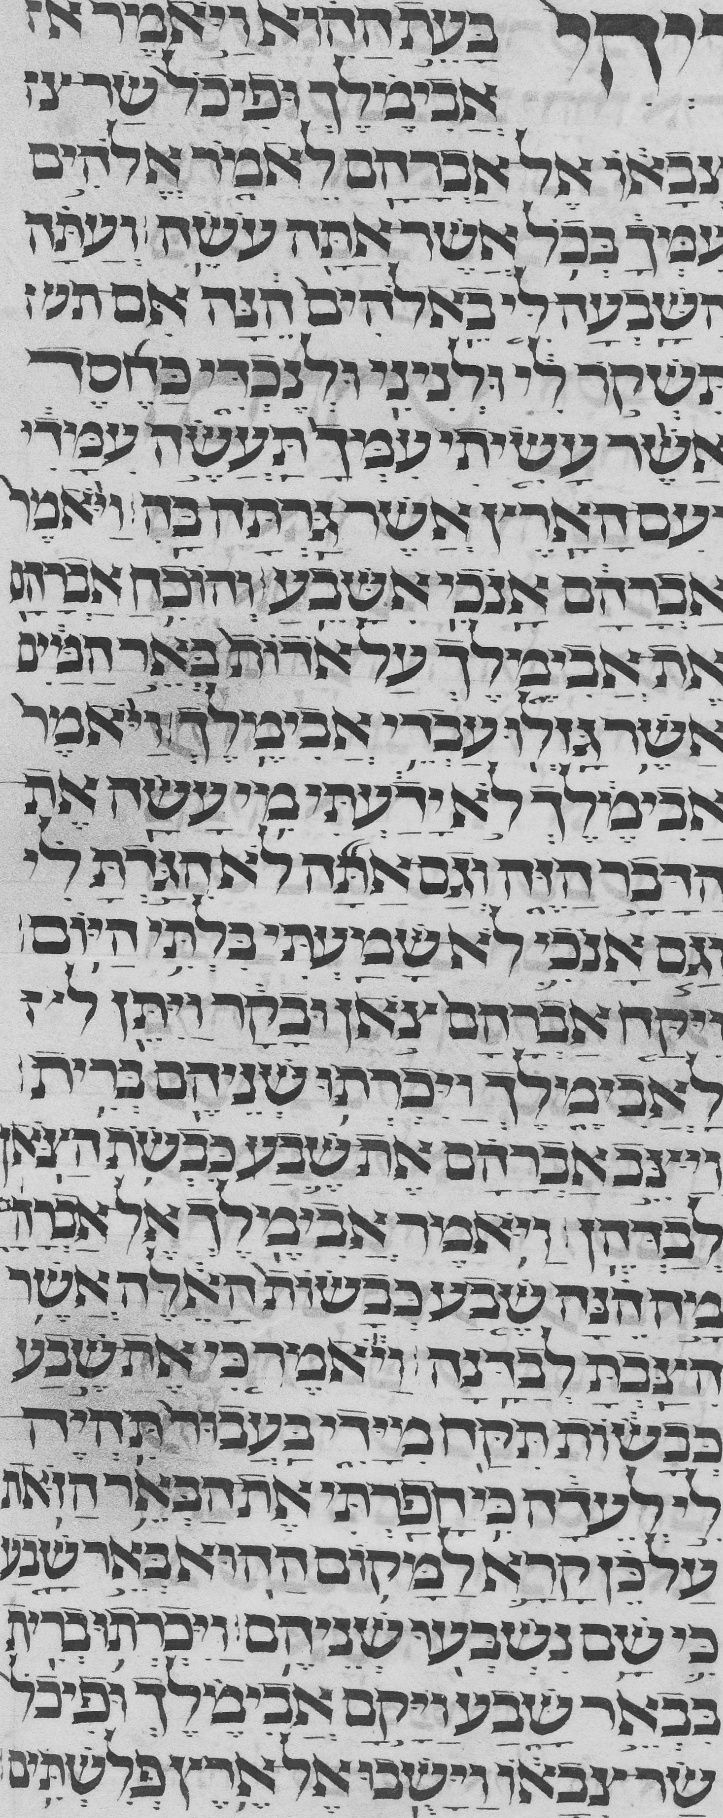 ויהי בעת ההוא ויאמר אז
אבימלך ופיכל שר צז
צבאו אל אברהם לאמר אלהים
עמך בכל אשר אתה עשה ועתה
השבעה לי באלהים הנה אם תשז
תשקר לי ולניני ולנכדי כחסד
אשר עשיתי עמך תעשה עמדי
ועם הארץ אשר גרתה בה ויאמר
אברהם אנכי אשבע והוכח אברהם
את אבימלך על אדות באר המים
אשר גזלו עבדי אבימלך ויאמר
אבימלך לא ידעתי מי עשה את
הדבר הזה וגם אתה לא הגדת לי
וגם אנכי לא שמעתי בלתי היום
ויקח אברהם צאן ובקר ויתן ליז
לאבימלך ויכרתו שניהם ברית
ויצב אברהם את שבע כבשת הצאן
לבדהן ויאמר אבימלך אל אברהם
מה הנה שבע כבשות האלה אשר
הצבת לבדנה ויאמר כי את שבע
כבשות תקח מידי בעבור תהיה
לי לעדה כי חפרתי את הבאר הזאת
על כן קרא למקום ההוא באר שבע
כי שם נשבעו שניהם ויכרתו ברית
בבאר שבע ויקם אבימלך ופיכל
שר צבאו וישבו אל ארץ פלשתים